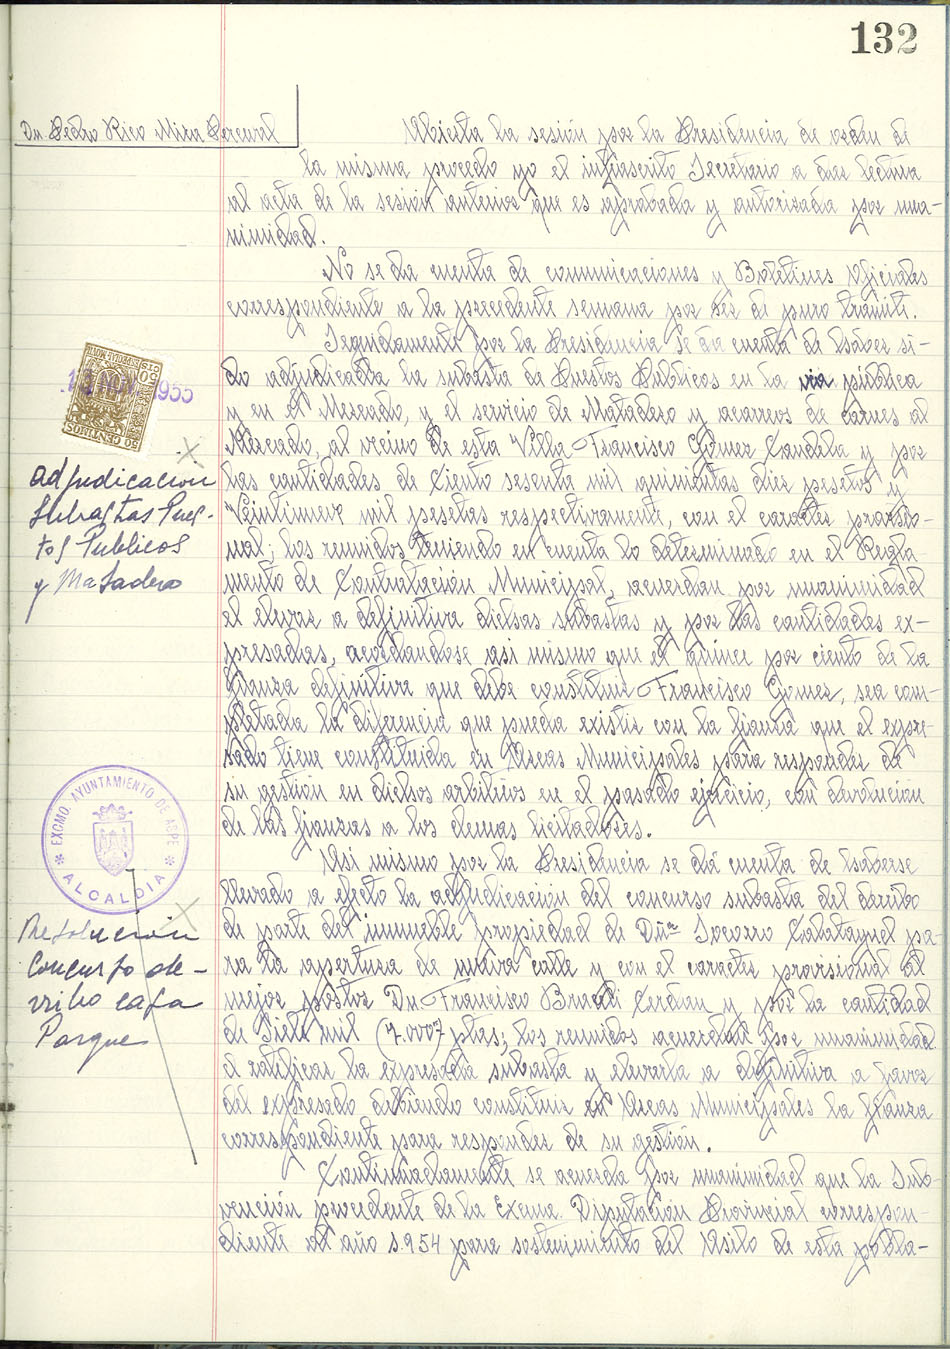 132
Dn. Pedro Rico Mira Perceval
Abierta la sesión por la Presidencia de orden de
la misma procedo yo el infrascrito Secretario a dar lectura
al acta de la sesión anterior que es aprobada y autorizada por una-
nimidad.
No se da cuenta de comunicaciones y Boletines Oficiales
correspondiente a la precedente semana por ser de puro trámite.
Seguidamente por la Presidencia se da cuenta de haber si-
do adjudicada la subasta de Puestos Públicos en la via pública
y en el Mercado, y el servicio de Matadero y acarreos de carnes al
Mercado, al vecino de esta Villa Francisco Gómez Candela y por
las cantidades de Ciento sesenta mil quinientas diez pesetas y
Veintinueve mil pesetas respectivamente, con el caracter provisio-
nal; los reunidos teniendo en cuenta lo determinado en el Regla-
mento de Contratación Municipal, acuerdan por unanimidad
el elevar a definitiva dichas subastas y por las cantidades ex-
presadas, acordandose asi mismo que el quince por ciento de la
fianza definitiva que debe constituir Francisco Gomez, sea com-
pletada la diferencia que pueda existir con la fianza que el expre-
sado tiene constituida en Arcas Municipales para responder de
su gestión en dichos arbitrios en el pasado ejercicio, con devolución
de las fianzas a los demas licitadores.
Asi mismo por la Presidencia se da cuenta de haberse
llevado a efecto la adjudicación del concurso subasta del derribo
de parte del inmueble propiedad de Dña Socorro Calatayud pa-
ra la apertura de nueva calle y con el caracter provisional al
mejor postor Dn. Francisco Cerdan y por la cantidad
de Siete mil (7.000) ptas; los reunidos acuerdan por unanimidad
el ratificar la expresada subasta y elevarla a definitiva a favor
del expresado debiendo constituir en Arcas Municipales la fianza
correspondiente para responder de su gestión.
Continuadamente se acuerda por unanimidad que la Sub-
vención procedente de la Excma. Diputación Provincial correspon-
diente al año 1.954 para sostenimiento del Asilo de esta pobla-
50 CENTIMOS
1955
adjudicacion
Subastas Pues-
tos Publicos
y Matadero
EXCMO. AYUNTAMIENTO DE ASPE
ALCALDIA
Resolución
Concurso de-
rribo casa
Parque